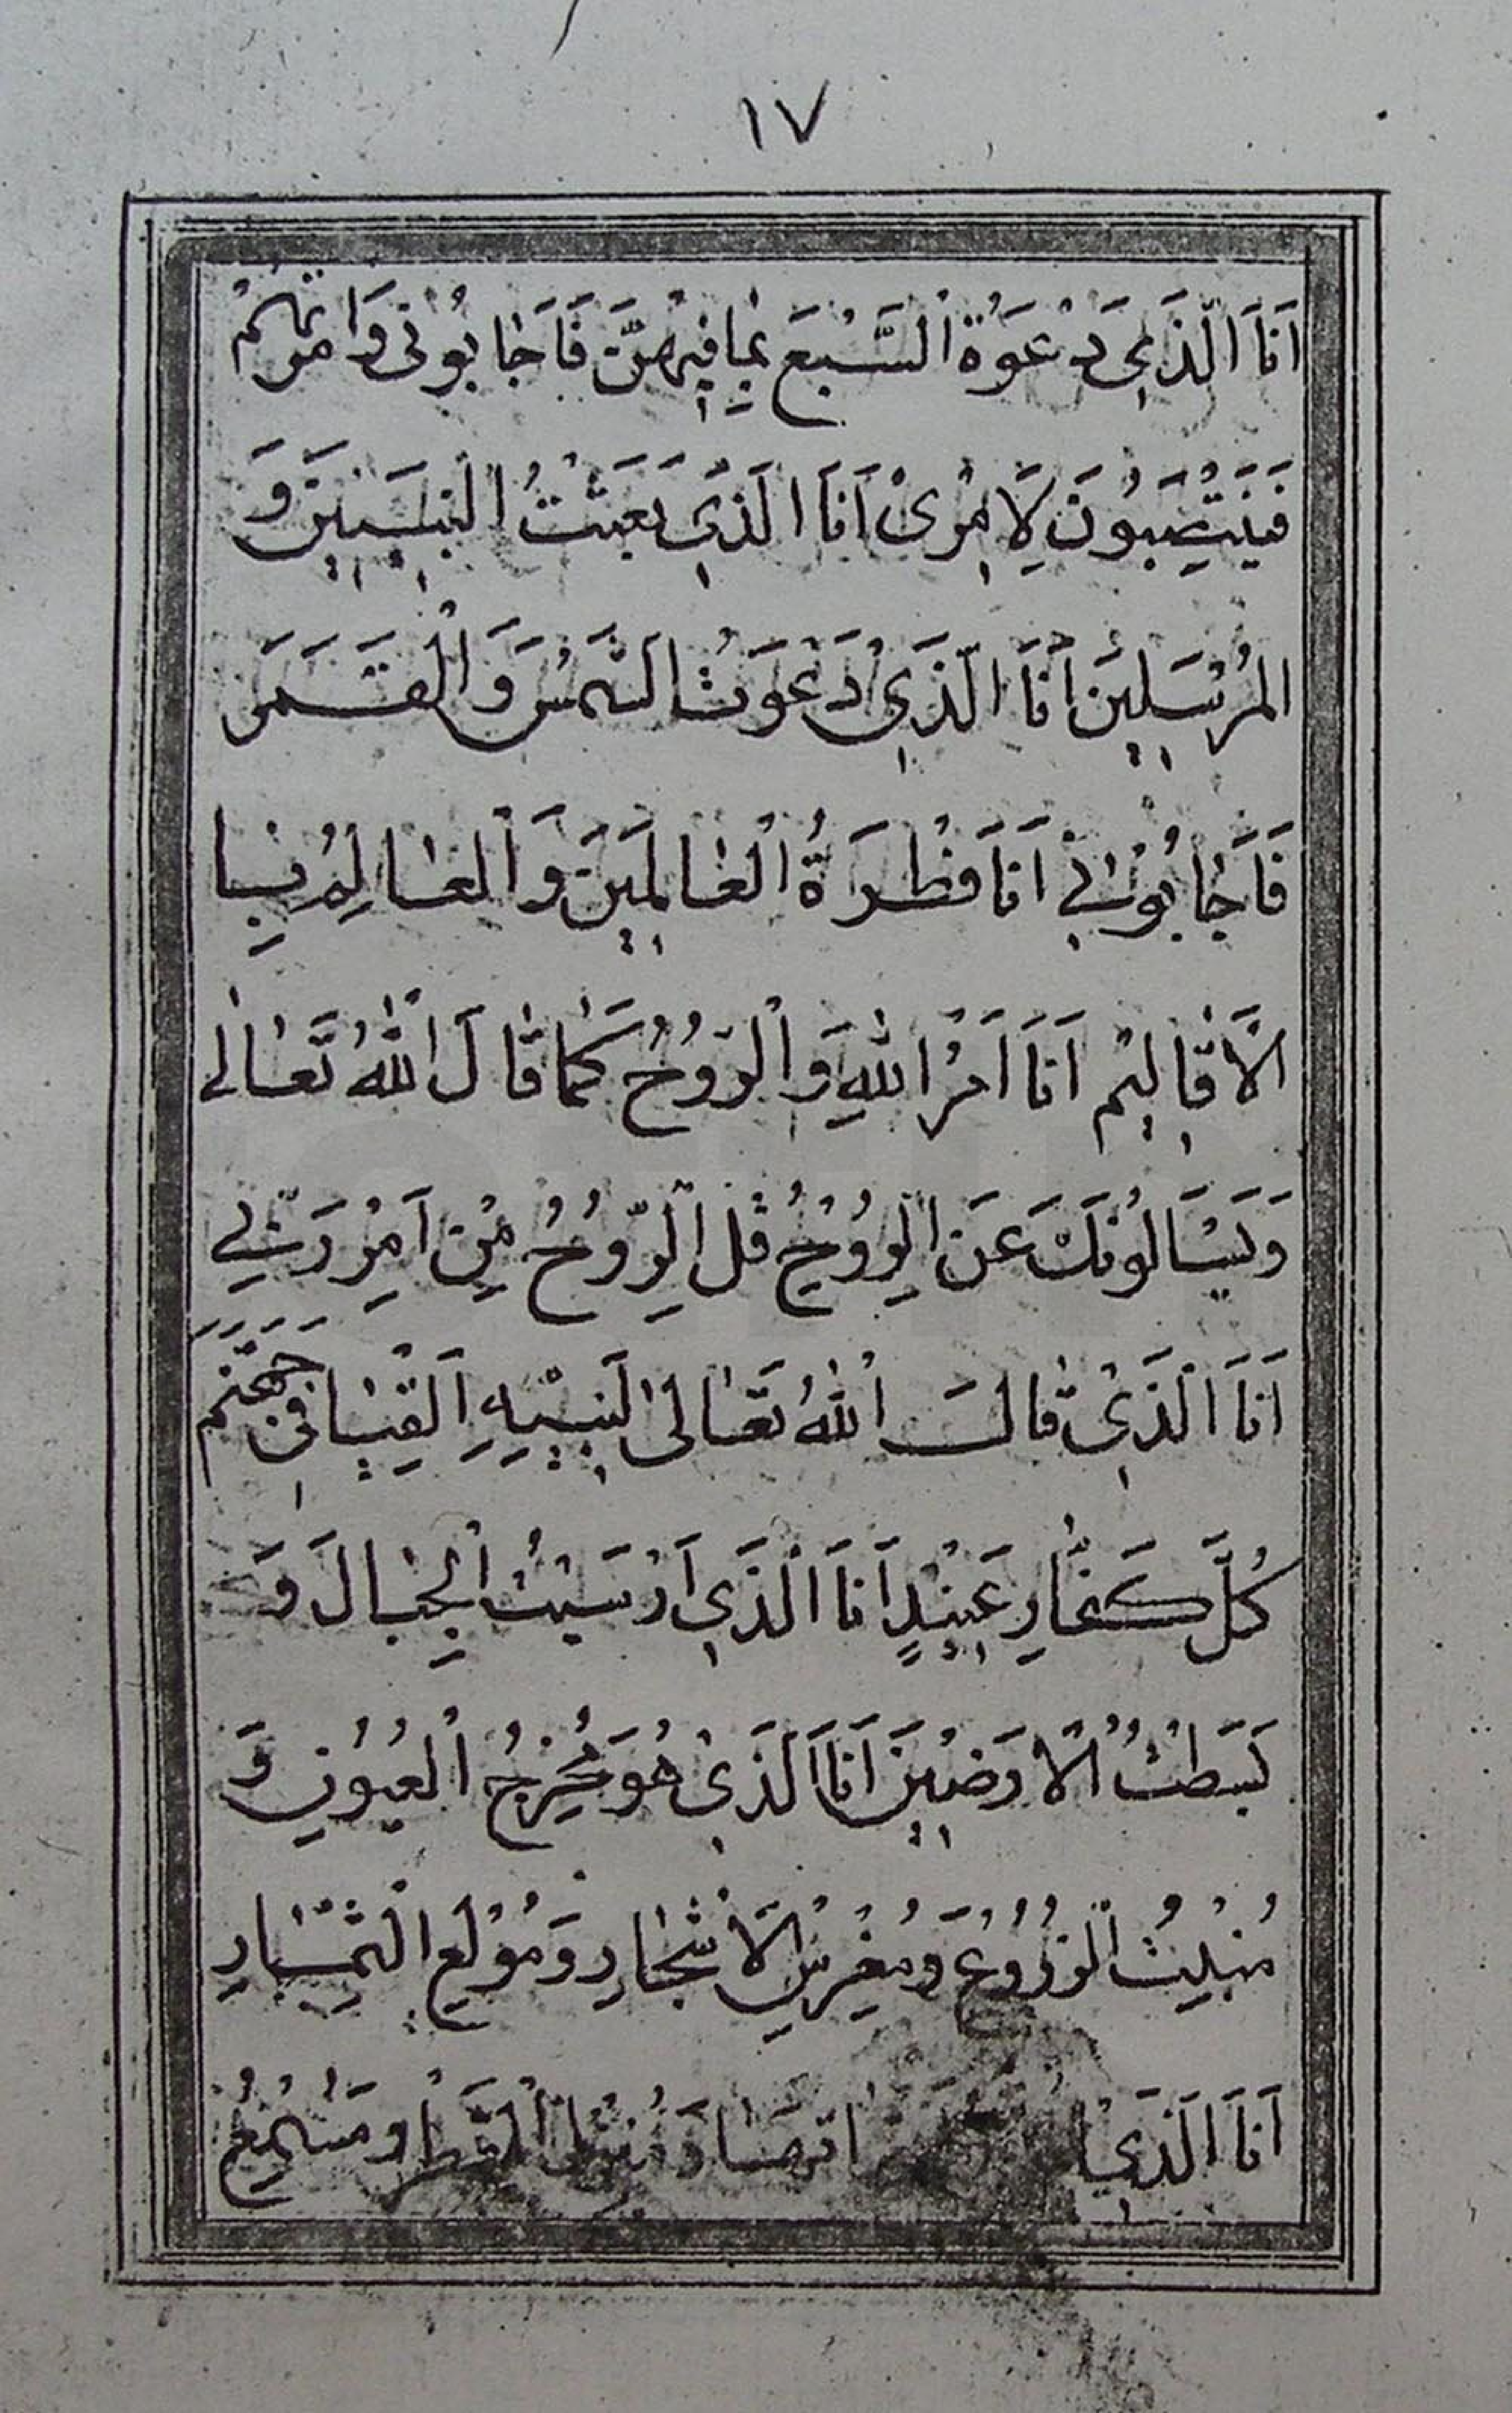 ١٧
اَنَا الَّذَي دَعَوَةُ السَّبْعَ بِمٰا فِيْهِنَّ فَاَجٰابُوْنى وَاَمَرْتُهُمْ
فَيَنْتَصِبُونَ لِاَمْرِىْ اَنَا الَّذَي بَعَثْتُ النَبِيِيْنَ وَ
المُرْسَلِيْنَ اَنَا الَّذَي دَعَوْتُ الشَمْسَ وَالْقَمَرَ
فَاَجٰابُوْنِيْ اَنَا فَطْرَةُ الْعٰالَمِيْنَ وَالْعٰالِمُ فِيْ
الْاَقٰالِيْم اَنَا اَمْرُ اللهِ وَالْرُّوُحُ كَمٰا قٰالَ اللهُ تَعٰالٰى
وَيَسْئَالُوْنَكَ عَنِ الرُّوُحِ قُلِ الرِّوُحُ مِنْ اَمْرِ رَبّىِ
اَنَا الَّذَيْ قٰالَ اللهُ تَعٰالىٰ لَنَبِيِهِ اَلْقِيٰا فى جَهَنَّمَ
كُلَّ كَفّٰارٍ عَنِيْدٍ اَنَا الَّذَي اَرْسَيْتُ الْجِبٰالَ وَ
بَسَطْتُ الْاَرَضِيْنَ اَنَا الَّذَيْ هُوَ مُخْرِجُ الْعُيُوْنِ وَ
مُنْبِتُ الْزُرُوُعِ وَمُغْرِسُ الْاَشْجٰارِ وَمُوْلِعِ الْثِمّٰارِ
اَنَا الَّذَي وَمُنْزِلُ الْقَطْرِ وَمُسْمِعُ